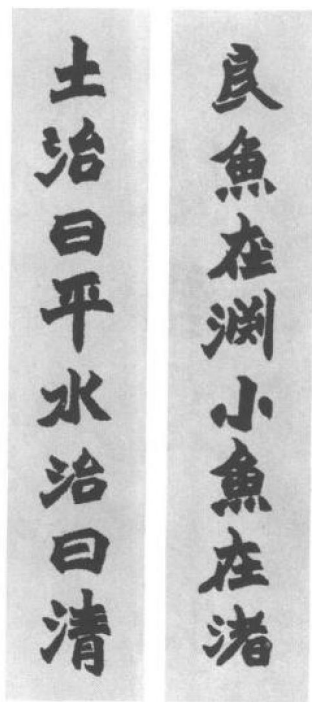 良魚在渊小魚在渚
土治曰平水治曰清